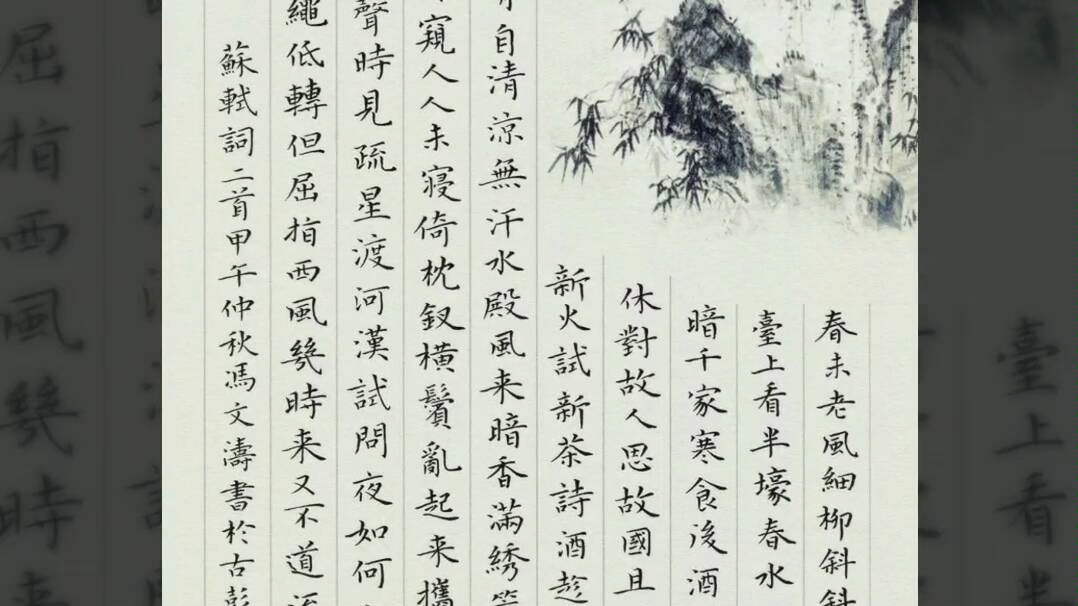 春未老風細柳斜斜
臺上看半壕春水
暗千家寒食後酒
休對故人思故國且
新火試新茶詩酒趁
自清涼無汗水殿風来暗香滿綉
窺人人未寢倚枕釵橫鬢亂起来攜
聲時見疏星渡河漢試問夜如何
繩低轉但屈指西風幾時来又不道
蘇軾詞二首甲午仲秋馮文濤書於古彭